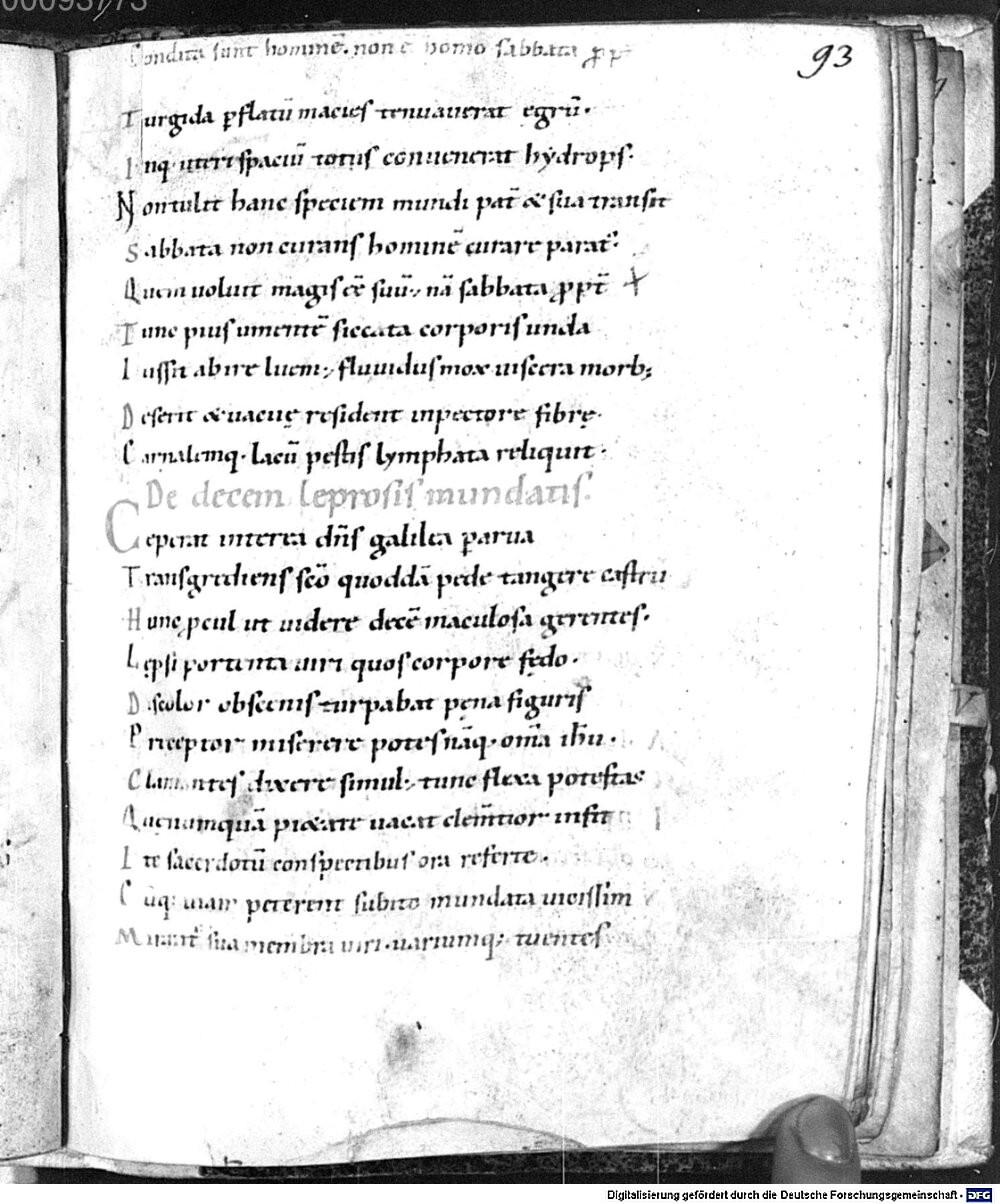 00093/73
93
Condita sunt hominē. non ē homo sabbata ꝓpt̄
Turgida ꝑflatū macies tenuauerat egrū·
Inq· uteri spaciū totus conuenerat hydrops·
Non tulit hanc speciem mundi pat̄ & sua transit
Sabbata non curans hominē curare parat᷒·
Quem uoluit magis cē̄ suū·, nā sabbata ꝓpt̄ +
Tunc pius umentē siccata corporis unda
Iussit abire luem·, fluuidus mox uiscera morb;
Deserit & uacuę resident inpectore fibrę·
Carnalemq· lacū pestis lymphata reliquit·
De decem leprosis mundatis·
Ceperat interea dn̄s galilea ꝑarua
Transgrediens scō quoddā pede tangere castru
Hunc ꝓcul ut uidere decē maculosa gerentes·
Lepsi portenta uiri quos corpore fędo·
Discolor obscenis turpabat pęna figuris
Preceptor miserere potes nāq· om̄a ih̄u·
Clamantes dixere simul·, tunc flexa potestas
Quę numquā pietate uacat clem̄tior infit
Ite sacerdotū conspectibus ora referte·
Cūq· uiam peterent subito mundata uicissim
Mirant᷒ sua membra uiri· uariumq; tuentes
Digitalisierung gefördert durch die Deutsche Forschungsgemeinschaft - DFG